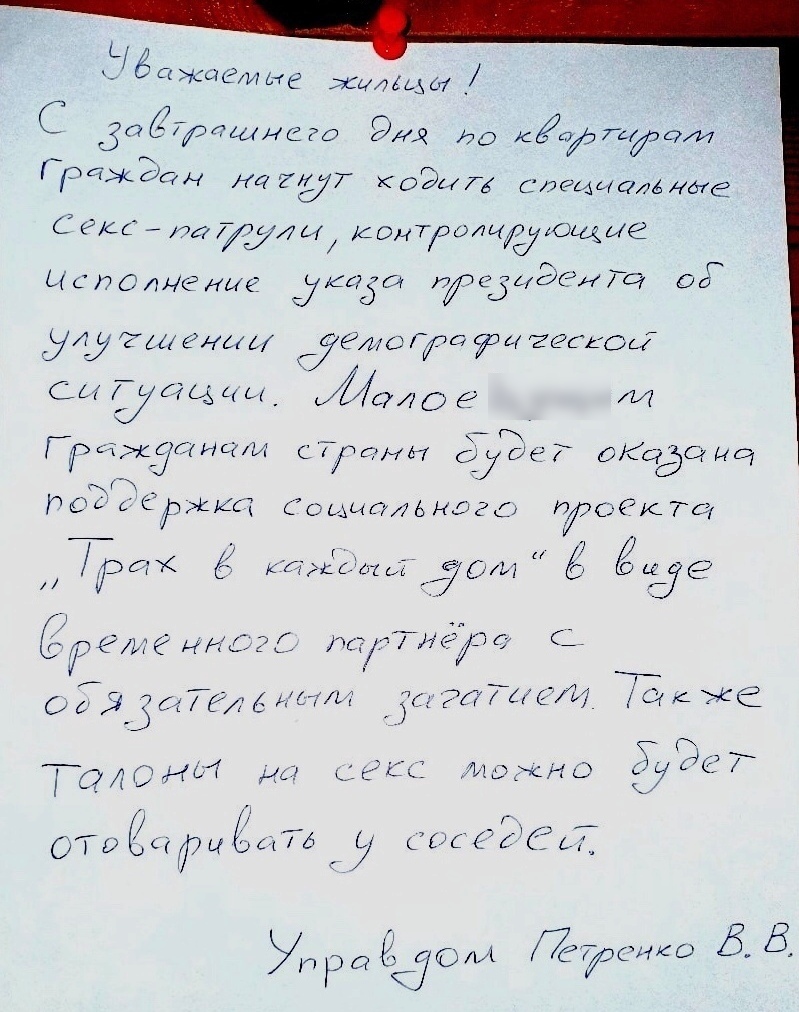 Уважаемые жильцы!
С завтрашнего дня по квартирам
граждан начнут ходить специальные
секс-патрули, контролирующие
исполнение указа президента об
улучшении демографической
ситуации. Малое м
гражданам страны будет оказана
поддержка социального проекта
„Трах в каждый дом“ в виде
временного партнёра с
обязательным зачатием. Также
талоны на секс можно будет
отоваривать у соседей.
Управдом Петренко В.В.